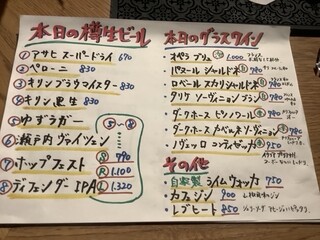 本日の樽生ビール
①アサヒ スーパードライ 690
②ペローニ 830
③キリンブラウマイスター 830
④キリン黒生 830
⑤ゆずラガー
⑥瀬戸内ヴァイツェン
⑦ホップフェスト
⑧ディフェンダーIPA
⑤〜⑧
S 990
R 1.100
L 1.320
本日のグラスワイン
・オペラ ブリュ 1.000
・パスエール シャルドネ 980
・ロベール スカリ シャルドネ 980
・タリケ ソーヴィニヨン ブラン
・ダークホース ピノノワール 980
・ダークホース カベルネソーヴィニヨン 980
・ノヴェッロ コンティゼッカ 950
その他
・自家製 ライムウォッカ 750
・カフェジン 900
・レブヒート 850